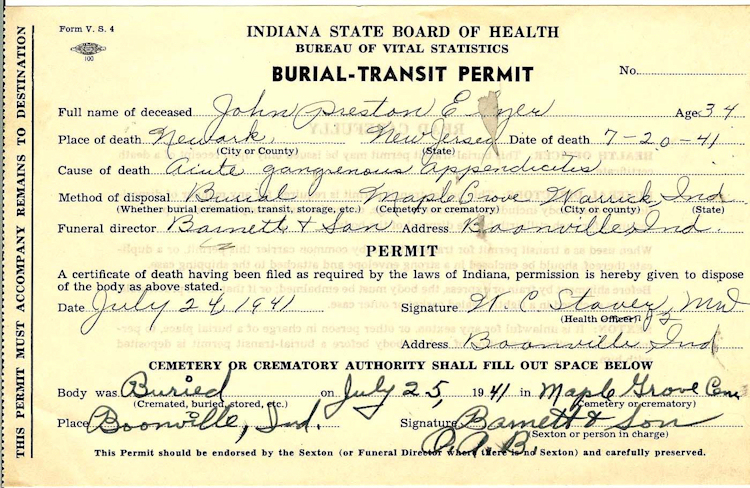 Form V. S. 4
100
INDIANA STATE BOARD OF HEALTH
BUREAU OF VITAL STATISTICS
BURIAL-TRANSIT PERMIT
No.
Full name of deceased John Preston E Age 34
Place of death Newark, New Jersey Date of death 7-20-41
(City or County) (State)
Cause of death Acute gangrenous Appendicitis
Method of disposal Burial Maple Grove Warrick Ind
(Whether burial cremation, transit, storage, etc.) (Cemetery or crematory) (City or county) (State)
Funeral director Barnett & Son Address Boonville Ind.
PERMIT
A certificate of death having been filed as required by the law of Indiana, permission is hereby given to dispose
of the body as above stated.
Date July 24 1941 Signature W. C. Stover, MD
(Health Officer)
Address Boonville, Ind
CEMETERY OR CREMATORY AUTHORITY SHALL FILL OUT SPACE BELOW
Body was Buried on July 25, 1941 in Maple Grove Cem
(Cremated, buried, stored, etc.) (Cemetery or crematory)
Place Boonville, Ind. Signature Barnett & Son
(Sexton or person in charge)
This Permit should be endorsed by the Sexton (or Funeral Director where there is no Sexton) and carefully preserved.
THIS PERMIT MUST ACCOMPANY REMAINS TO DESTINATION